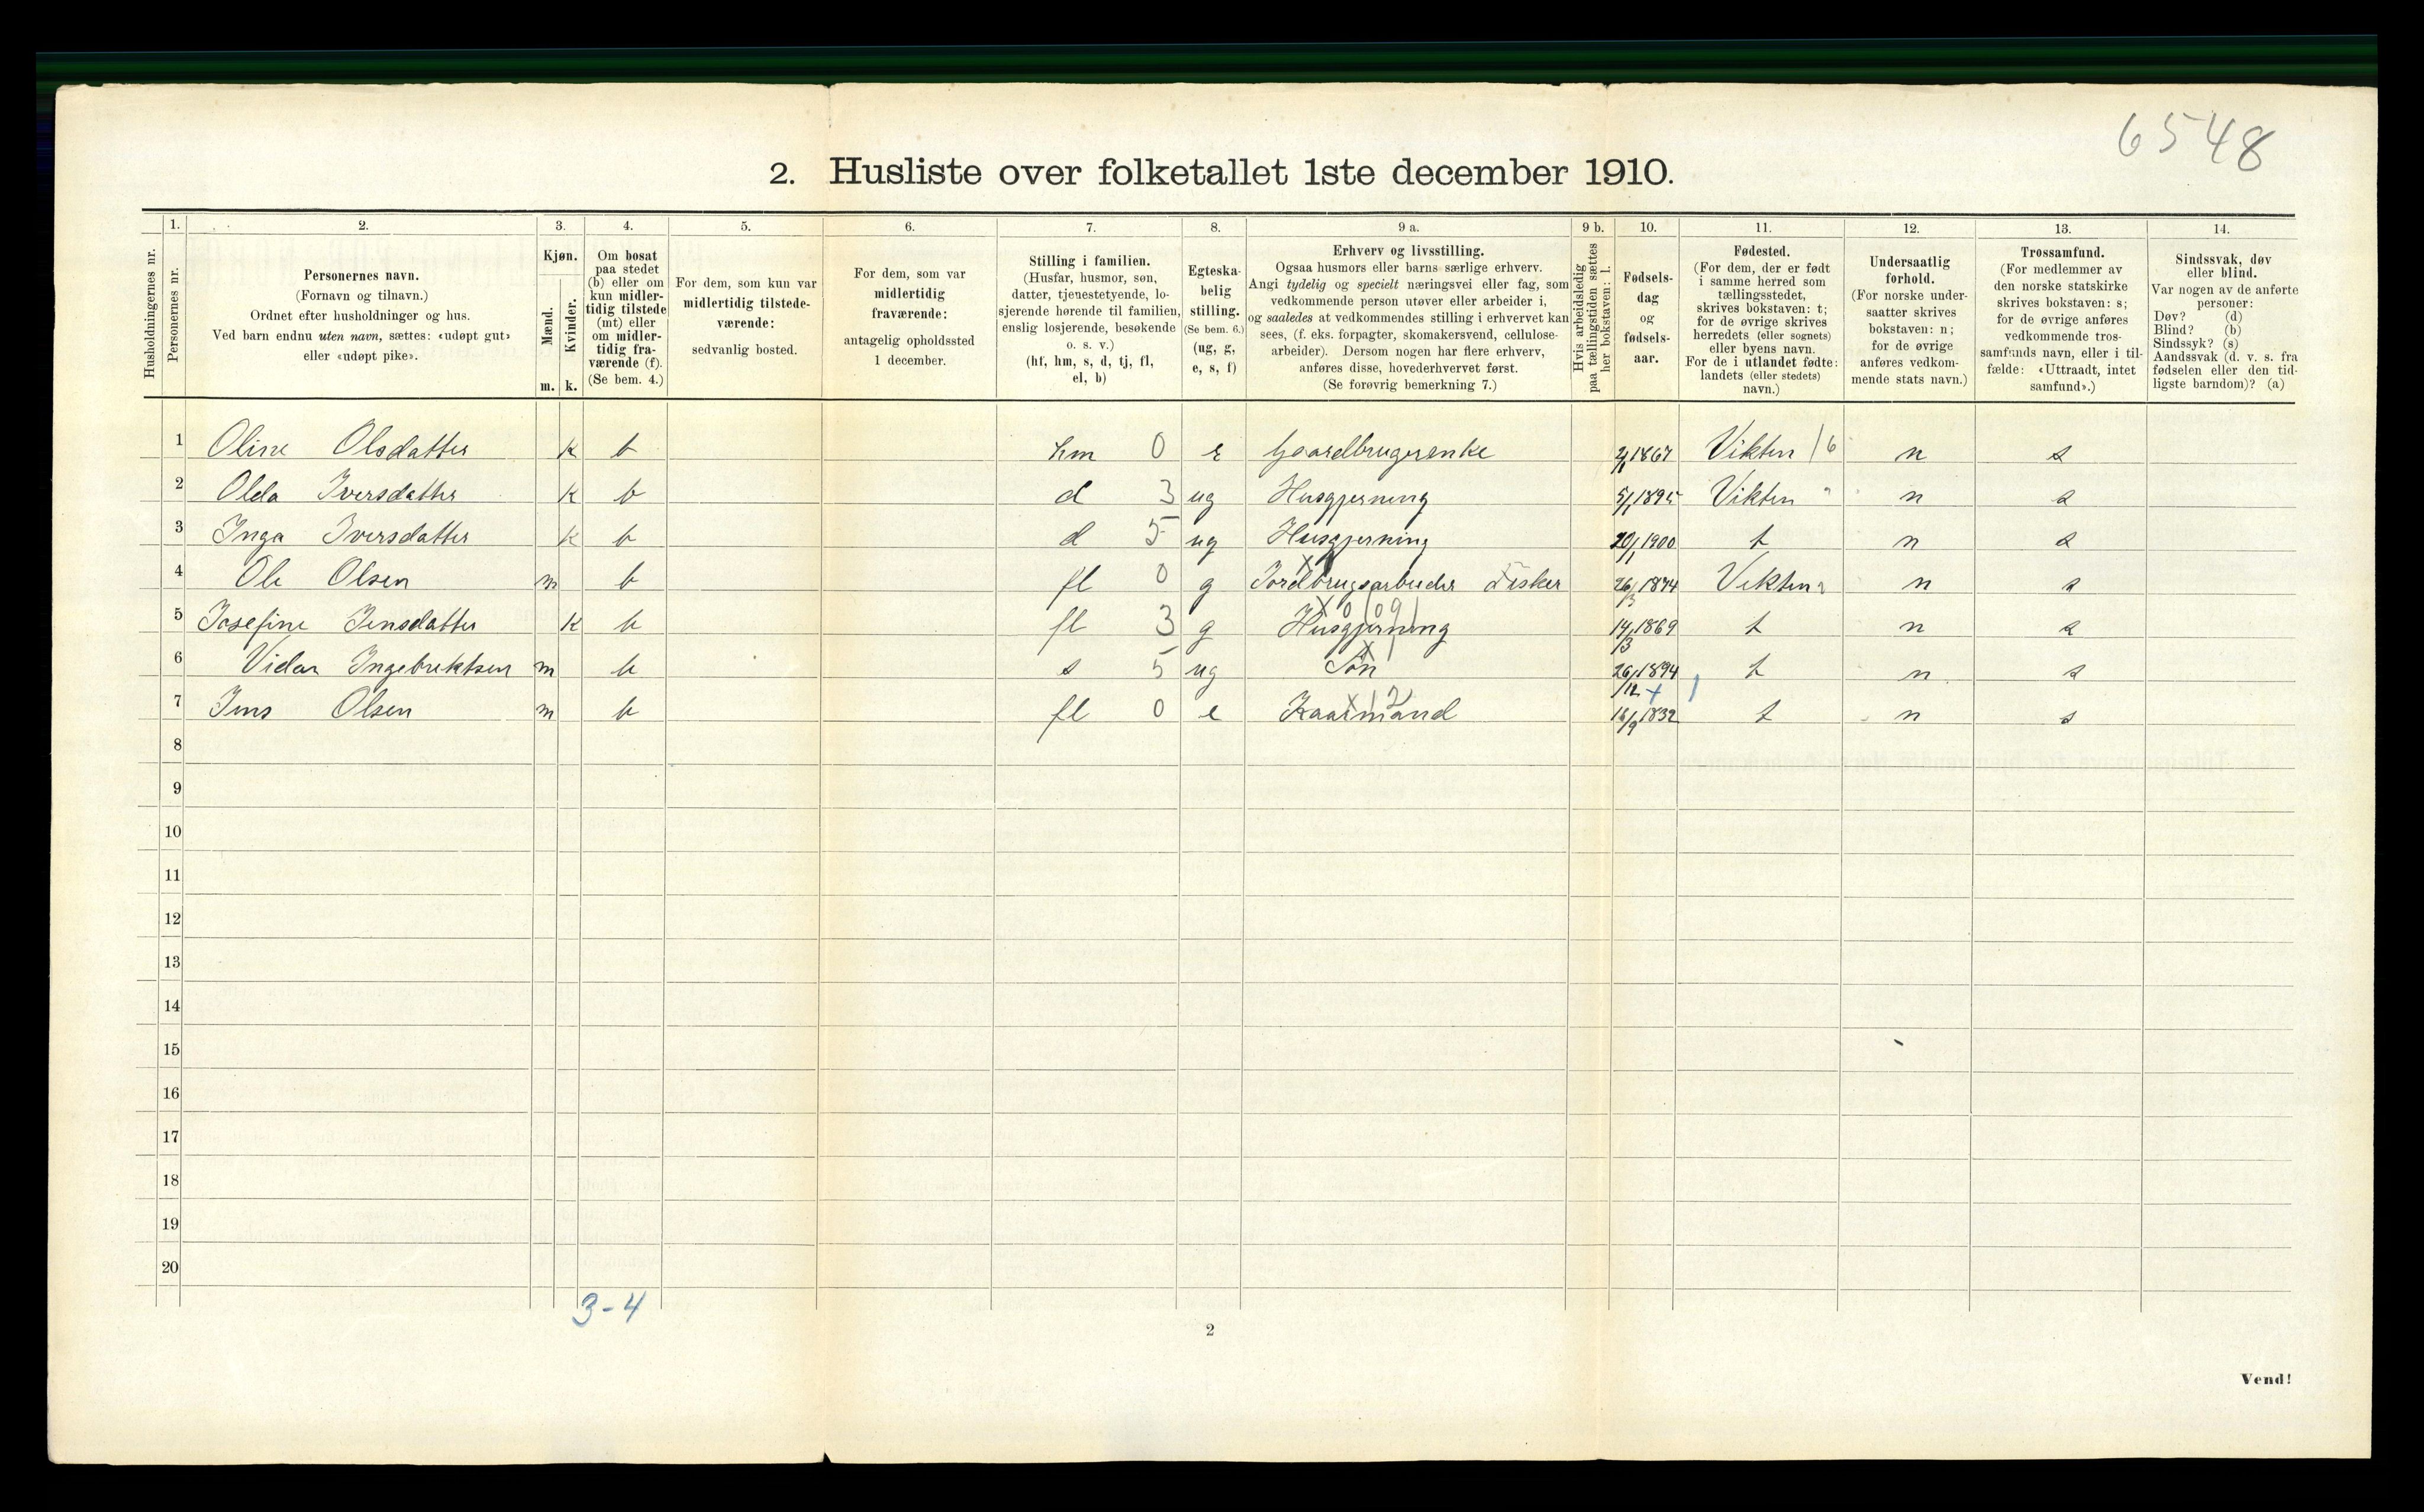 6548
2. Husliste over folketallet 1ste december 1910.
Husholdningernes nr.
1.
Personernes nr.
2.
Personernes navn.
(Fornavn og tilnavn.)
Ordnet efter husholdninger og hus.
Ved barn endnu uten navn, sættes: «udøpt gut»
eller «udøpt pike».
3.
Kjøn.
Mænd.
Kvinder.
m. k.
4.
Om bosat
paa stedet
(b) eller om
kun midler-
tidig tilstede
(mt) eller
om midler-
tidig fra-
værende (f).
(Se bem. 4.)
5.
For dem, som kun var
midlertidig tilstede-
værende:
sedvanlig bosted.
6.
For dem, som var
midlertidig
fraværende:
antagelig opholdssted
1 december.
7.
Stilling i familien.
(Husfar, husmor, søn,
datter, tjenestetyende, lo-
sjerende hørende til familien,
enslig losjerende, besøkende
o. s. v.)
(hf, hm, s, d, tj, fl,
el, b)
8.
Egteska-
belig
stilling.
(Se bem. 6.)
(ug, g,
e, s, f)
9 a.
Erhverv og livsstilling.
Ogsaa husmors eller barns særlige erhverv.
Angi tydelig og specielt næringsvei eller fag, som
vedkommende person utøver eller arbeider i,
og saaledes at vedkommendes stilling i erhvervet kan
sees, (f. eks. forpagter, skomakersvend, cellulose-
arbeider). Dersom nogen har flere erhverv,
anføres disse, hovederhvervet først.
(Se forøvrig bemerkning 7.)
9 b.
Hvis arbeidsledig
paa tællingstiden sættes
her bokstaven: l.
10.
Fødsels-
dag
og
fødsels-
aar.
11.
Fødested.
(For dem, der er født
i samme herred som
tællingsstedet,
skrives bokstaven: t;
for de øvrige skrives
herredets (eller sognets)
eller byens navn.
For de i utlandet fødte:
landets (eller stedets)
navn.)
12.
Undersaatlig
forhold.
(For norske under-
saatter skrives
bokstaven: n;
for de øvrige
anføres vedkom-
mende stats navn.)
13.
Trossamfund.
(For medlemmer av
den norske statskirke
skrives bokstaven: s;
for de øvrige anføres
vedkommende tros-
samfunds navn, eller i til-
fælde: «Uttraadt, intet
samfund».)
14.
Sindssvak, døv
eller blind.
Var nogen av de anførte
personer:
Døv? (d)
Blind? (b)
Sindssyk? (s)
Aandssvak (d. v. s. fra
fødselen eller den tid-
ligste barndom)? (a)
1 Oline Olsdatter k b hm 0 e Gaardbrugerenke 1867 Vikten 16 n s
2 Olda Iversdatter k b d 3 ug Husgjerning 5/1 1895 Vikten " n s
3 Inga Iversdatter k b d 5 ug Husgjerning 20/1 1900 t n s
4 Ole Olsen m b fl 0 g Jordbrugsarbeider Fisker 26/3 1874 Vikten " n s
5 Josefine Jensdatter k b fl 3 g Husgjerning 14/3 1869 t n s
6 Vidar Ingebriktsen m b s 5 ug Søn 26/12 1894 t n s
7 Jens Olsen m b fl 0 e Kaarmand 1832 t n s
8
9
10
11
12
13
14
15
16
17
18
19
20
3-4
2
Vend!